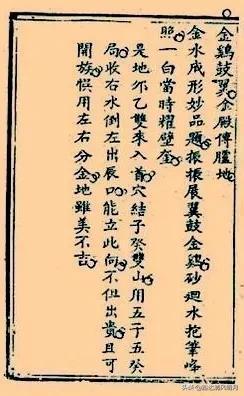 金鷄鼓翼金殿傳臚地
金水成形妙品題振振展翼鼓金鷄砂迴水抱筆峰
照一白當時耀壁奎
是地卯乙雙來入首穴結子癸雙山用五子五癸
局收右水倒左出辰口能立此向不但出貴且可
開族悞用左右分金地雖美不吉